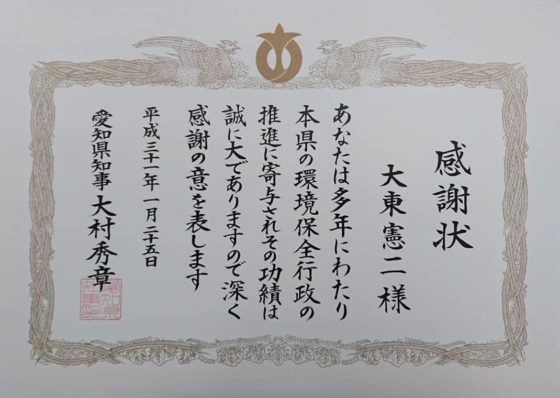 感謝状
大東憲二様
あなたは多年にわたり
本県の環境保全行政の
推進に寄与されその功績は
誠に大でありますので深く
感謝の意を表します
平成三十一年一月二十五日
愛知県知事 大村秀章